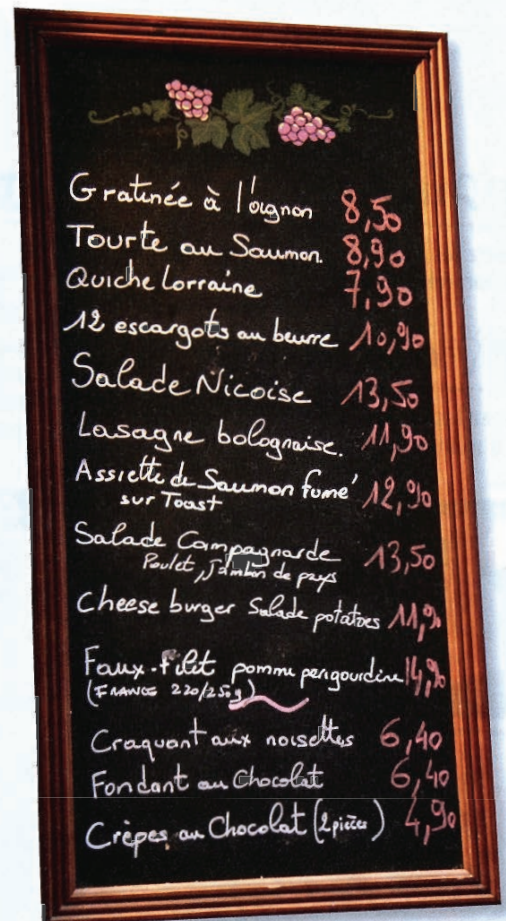 Gratinée à l'oignon 8,50
Tourte au Saumon. 8,90
Quiche Lorraine 7,90
12 escargots au beurre 10,90
Salade Nicoise 13,50
Lasagne bolognaise. 11,90
Assiette de Saumon fumé 12,90
sur Toast
Salade Campagnarde 13,50
Poulet, Jambon de pays
Cheese burger Salade potatoes 11,90
Faux-filet pomme perigourdine 14,90
(FRANCE 220/250g)
Craquant aux noisettes 6,40
Fondant au Chocolat 6,40
Crèpes au Chocolat (2 pièces) 4,90